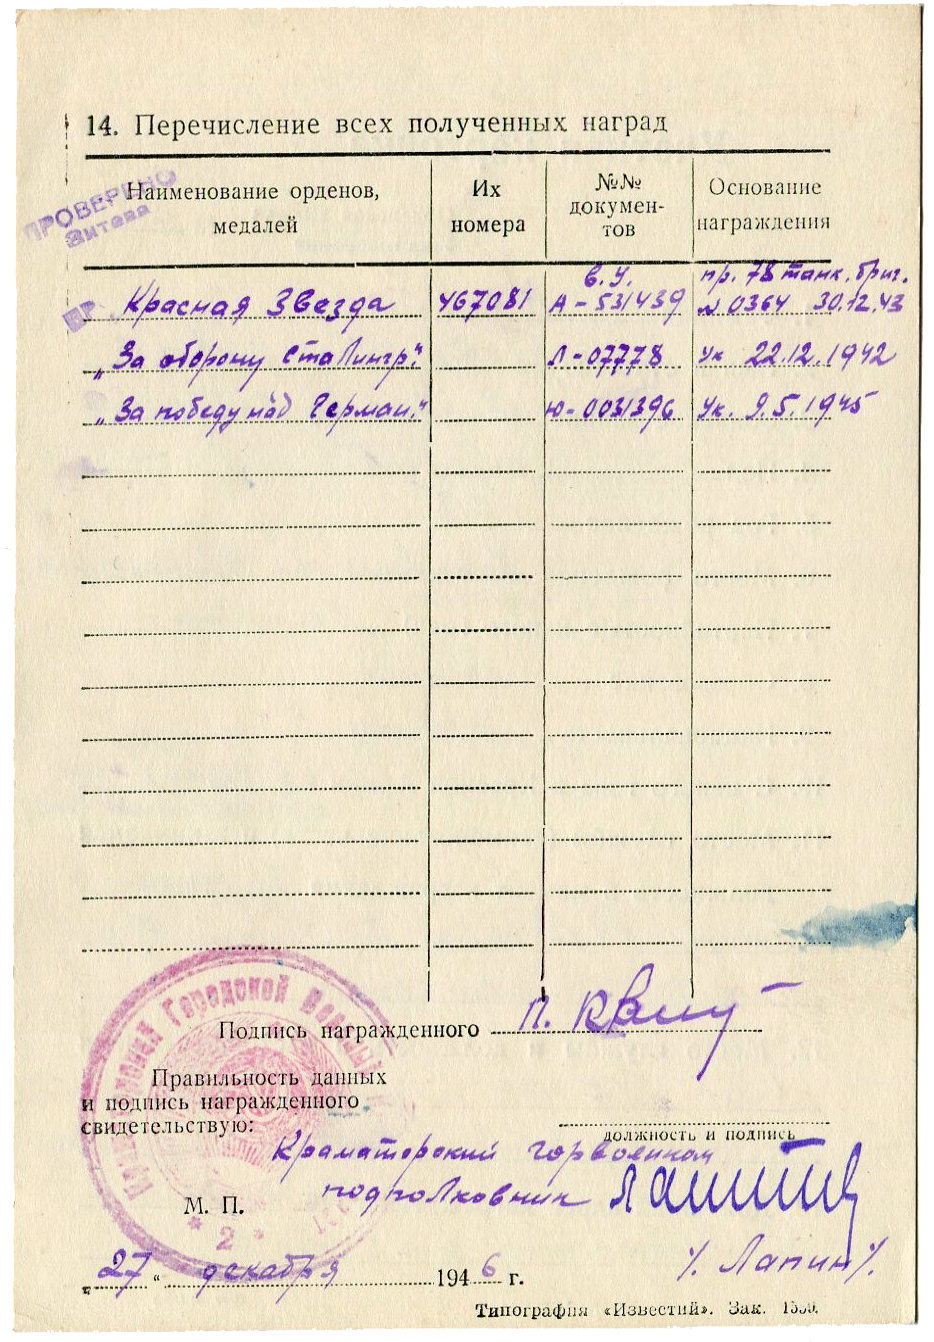 14. Перечисление всех полученных наград
ПРОВЕРЕНО
Наименование орденов, медалей
Их номера
№№ докумен-тов
Основание награждения
Красная Звезда 467081 в.у. А-531439 пр. 78 танк. бриг. № 0364 30.12.43
"За оборону Сталингр." Л-07778 Ук 22.12.1942
"За победу над Герман." Ю-0031396 Ук. 9.5.1945
Подпись награжденного П.
Правильность данных
и подпись награжденного
свидетельствую:
должность и подпись
Краматорский горвоенком
подполковник
М. П.
Городской
* 2 *
/. Лапин/.
„27“ декабря 1946 г.
Типография «Известий». Зак. 1550.